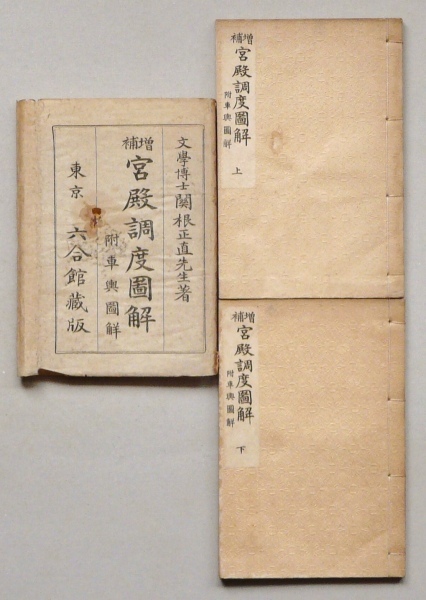 文學博士關根正直先生著
増補
宮殿調度圖解
附車輿圖解
東京
六合館藏版
増補
宮殿調度圖解
附車輿圖解
上
増補
宮殿調度圖解
附車輿圖解
下